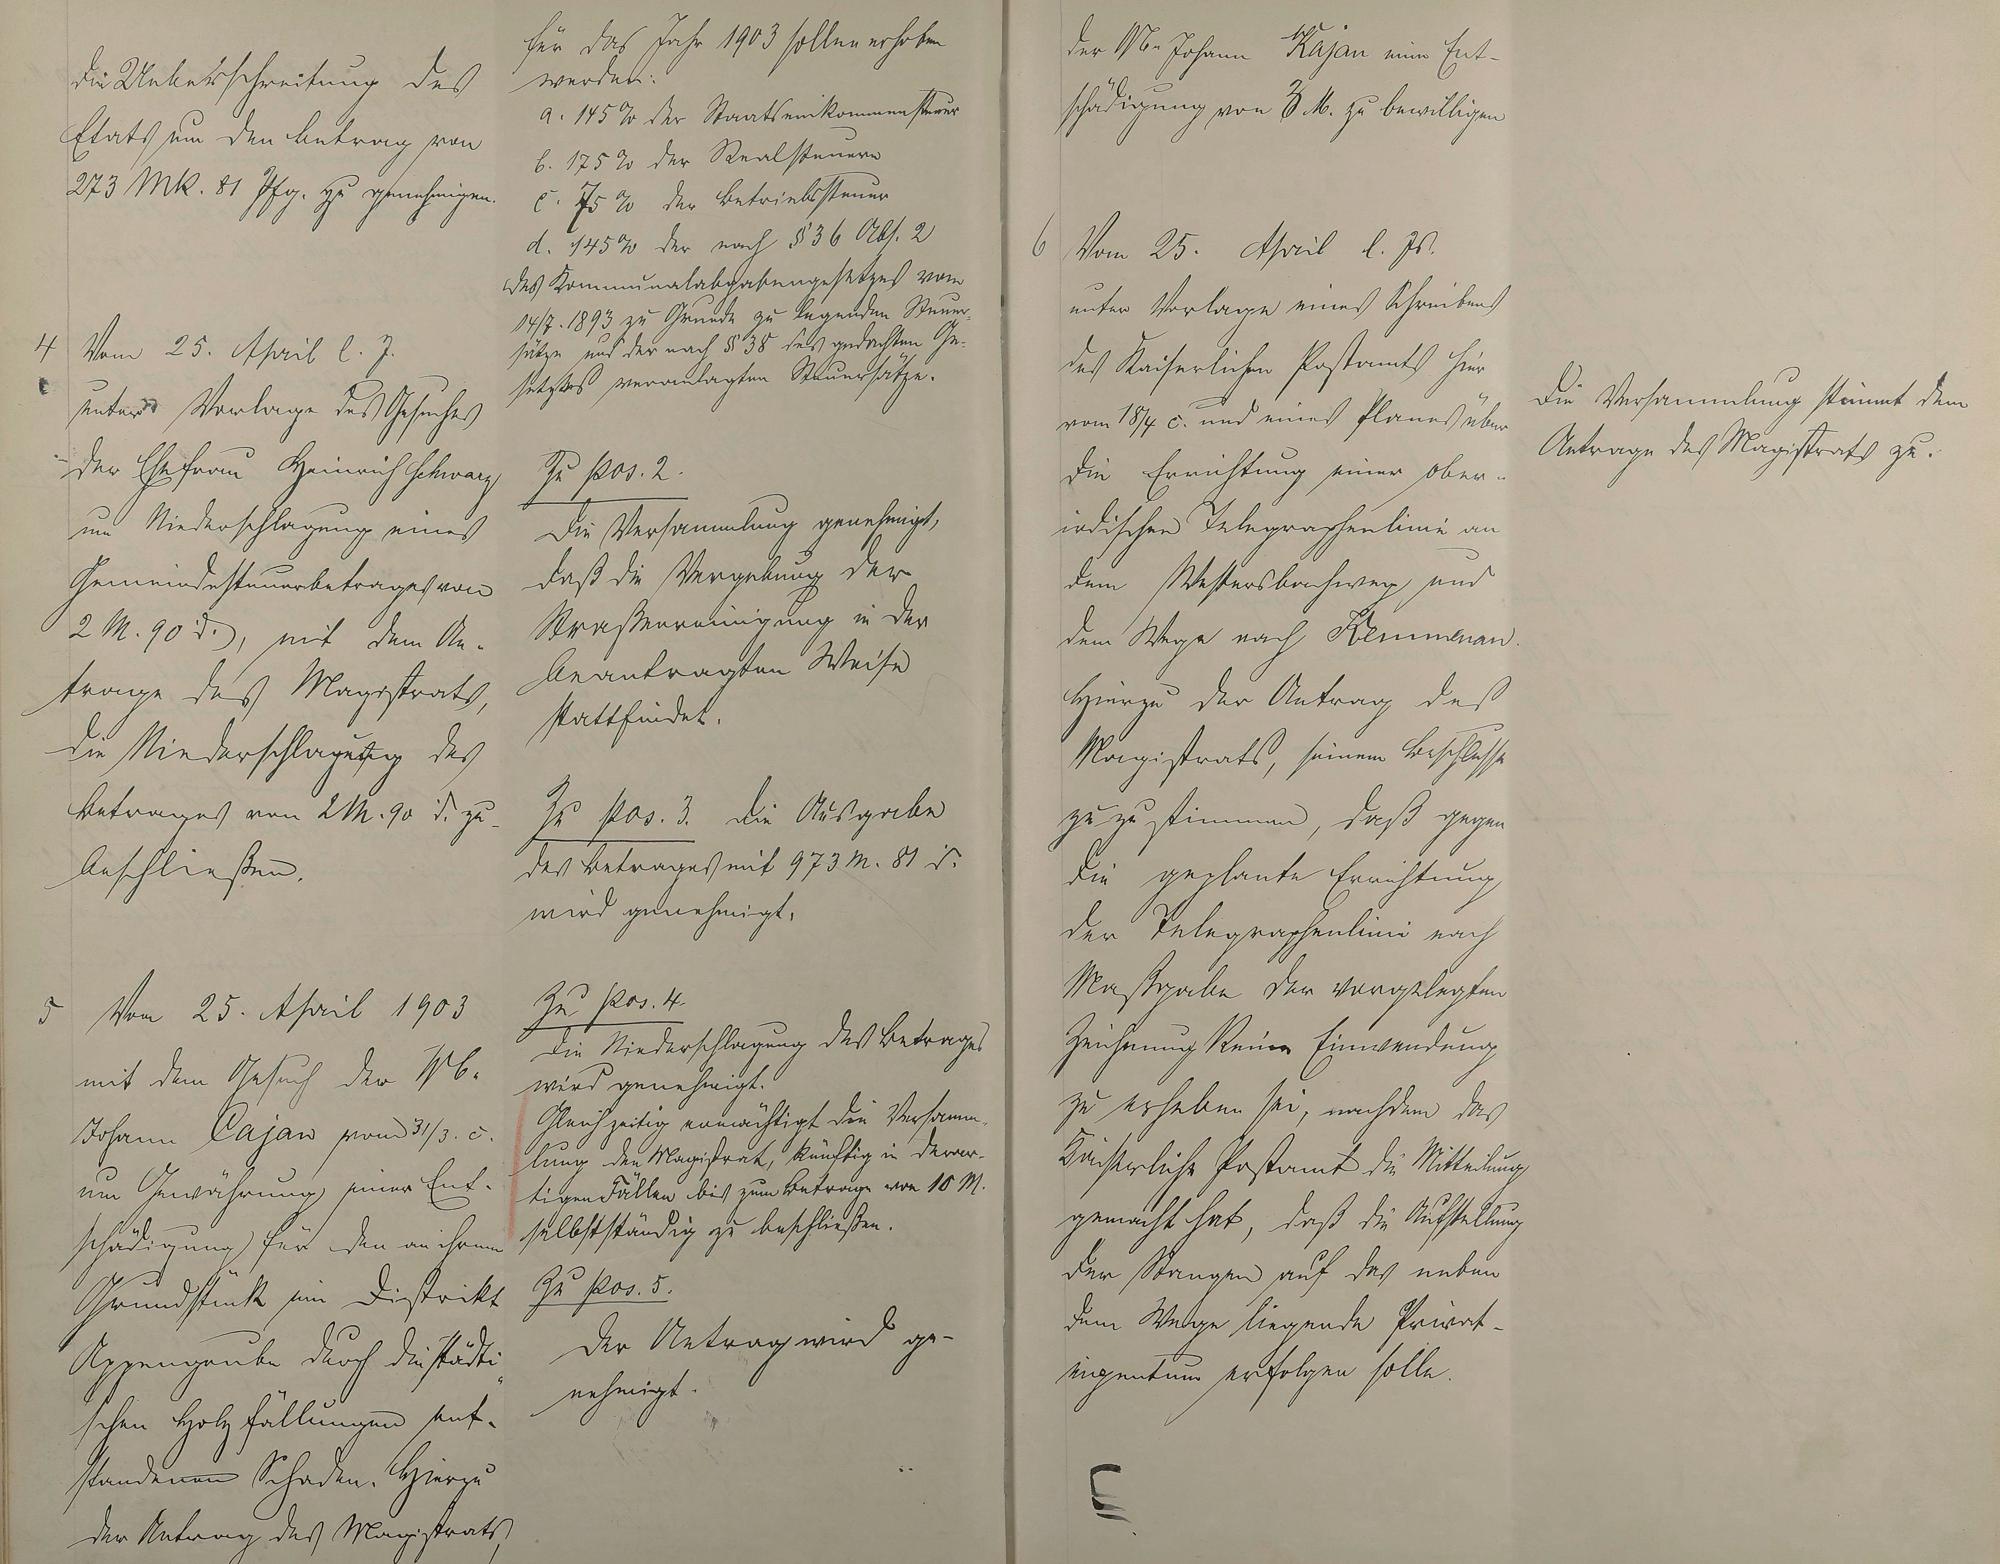 die Ueberschreitung des
Etats um den Betrag von
273 Mk. 81 Pfg. zu genehmigen.
4 Vom 25. April l. J.
unter Vorlage des Gesuches
der Ehefrau Heinrich Schwarz
um Niederschlagung eines
Gemeindesteuerbetrages von
2 M. 90 d., mit dem An-
trage des Magistrats,
die Niederschlagung des
Betrages von 2 M. 90 d. zu
beschließen.
5 Vom 25. April 1903
mit dem Gesuch der Wb.
Johann Cajan vom 31/3. c.
um Gewährung einer Ent-
schädigung für den an ihrem
Grundstück im Distrikt
Eppengrube durch die städti-
schen Holzfällungen ent-
standenen Schaden. Hierzu
der Antrag des Magistrats,
für das Jahr 1903 sollen erhoben
werden:
a. 145 % der Staatseinkommensteuer
b. 175 % der Realsteuern
c. 75 % der Betriebssteuer
d. 145 % der nach § 36 Abs. 2
des Kommunalabgabengesetzes vom
14/7. 1893 zu Grunde zu legenden Steuer-
sätze und der nach § 38 des gedachten Ge-
setztes veranlagten Steuersätze.
Zu pos. 2.
Die Versammlung genehmigt,
daß die Vergebung der
Straßenreinigung in der
beantragten Weise
stattfindet.
Zu pos. 3. Die Ausgabe
des Betrages mit 973 M. 81 d.
wird genehmigt.
Zu pos. 4.
Die Niederschlagung des Betrages
wird genehmigt.
Gleichzeitig ermächtigt die Versamm-
lung den Magistrat, künftig in derar-
tigen Fällen bis zum Betrage von 10 M.
selbstständig zu beschließen.
Zu pos. 5.
Der Antrag wird ge-
nehmigt.
der Wb. Johann Kajan eine Ent-
schädigung von M. zu bewilligen
6 Vom 25. April l. Js.
unter Vorlage eines Schreibens
des Kaiserlichen Postamts hier
vom 18/4 c. und eines Planes über
die Errichtung einer ober-
irdischen Telegraphenlinie an
dem Westersbachweg und
dem Wege nach Kemmenau.
Hierzu der Antrag des
Magistrats, seinem Beschlusse
zuzustimmen, daß gegen
die geplante Errichtung
der Telegraphenlinie nach
Maßgabe der vorgelegten
Zeichnung keine Einwendung
zu erheben sei, nachdem das
Kaiserliche Postamt die Mitteilung
gemacht hat, daß die Aufstellung
der Stangen auf das neben
dem Wege liegende Privat-
eigentum erfolgen solle.
Die Versammlung stimmt dem
Antrage des Magistrats zu.